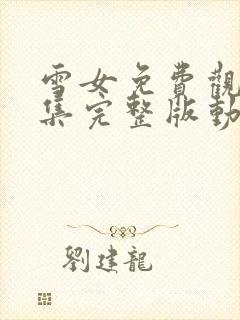 雪女免費觀
集完整版動
劉建龍